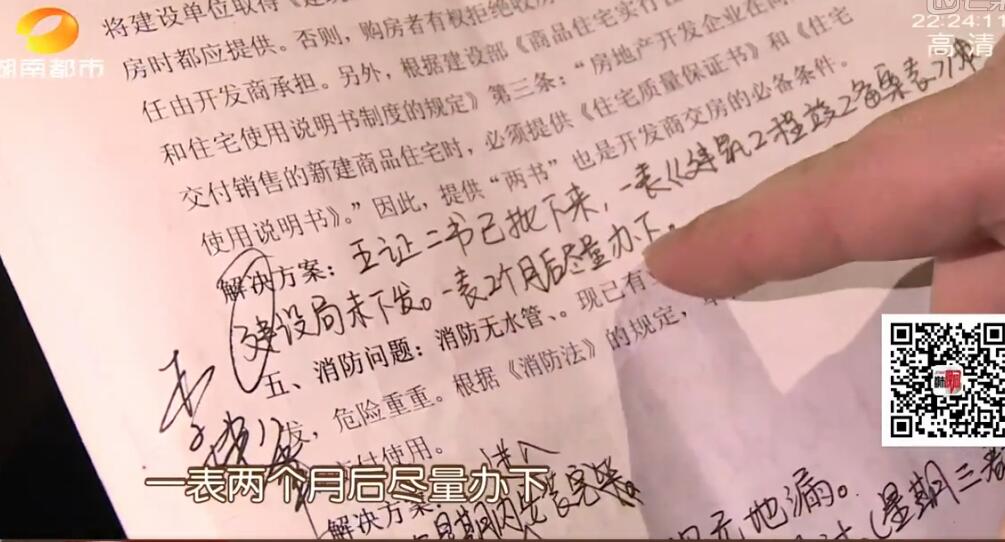 湖南都市
22:24:1
高清
将建设单位取得《建
房时都应提供。否则，购房者有权拒绝收房
任由开发商承担。另外，根据建设部《商品住宅实行住
和住宅使用说明书制度的规定》第三条：“房地产开发企业在向
交付销售的新建商品住宅时，必须提供《住宅质量保证书》和《住宅
使用说明书》。”因此，提供“两书”也是开发商交房的必备条件。
解决方案：五证二书已批下来，一表《建筑工程竣工备案表》
建设局未下发。一表2个月后尽量办下。
五、消防问题：消防无水管、。现已有
发，危险重重。根据《消防法》的规定，
交付使用。
解决方案
地漏。
(星期三
一表两个月后尽量办下